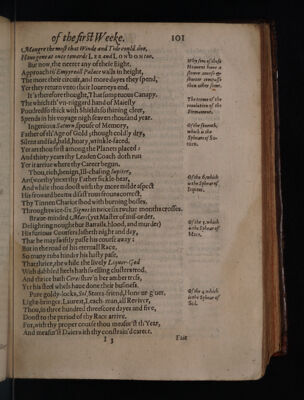 of the first Weeke.
101
Maugre the most that Winde and Tide could doe,
Haue gone at once towards LEZ and LONDON.
But now, the neerer any of these Eight
Approach th' Empyreall Palace walls in height,
The more their circuit, and more dayes they spend,
Yer they return vnto their Journeys end.
It's therefore thought, That sumptuous Canapy,
The which th' vn-niggard hand of Maiesty
Poudred so thick with Shields so shining cleer,
Spends in his voyage nigh seauen thousand year.
Ingenious Saturn, spouse of Memory,
Father of th' Age of Gold, though coldly dry,
Silent and sad, bald, hoary, wrinkle-faced,
Yet art thou first among the Planets placed:
And thirty years thy Leaden Coach doth run
Yer it arriue where thy Career begun.
Thou, rich, benign, Ill-chasing Iupiter,
Art (worthy) next thy Father sickle-bear,
And while thou doost with thy more milde aspect
His froward beams disastrous frowns correct,
Thy Tinnen Chariot shod with burning bosses,
Through twice-six Signes in twice six twelue months crosses.
Braue-minded Mars (yet Master of mis-order,
Delighting nought but Battails, blood, and murder)
His furious Coursers lasheth night and day,
That he may swiftly passe his course away:
But in the road of his eternall Race,
So many rubs hinder his hasty pase,
That thrice, the while the lively Liquor-God
With dabbled heels hath swelling clusters trod,
And thrice hath Ceres shav'n her amber tress,
Yer his steel wheels haue done their business.
Pure goldy-locks, Sol, States-friend, Honour-giuer,
Light-bringer, Laureat, Leach-man, all Reviver,
Thou, in three hundred threescore dayes and fiue,
Doost to the period of thy Race arriue.
For, with thy proper course thou measur'st th' Year,
And measur'st Daies with thy constrain'd career.
I 3
Fair
Why some of these
Heauens haue a
slower course &
shorter compass
than other some.
The terme of the
reuolution of the
Firmament.
Of the seuenth,
which is the
Sphear of Saturn.
Of the 6, which
is the Sphear of
Iupiter.
Of the 5, which
is the Sphear of
Mars.
Of the 4, which
is the Sphear of
Sol.